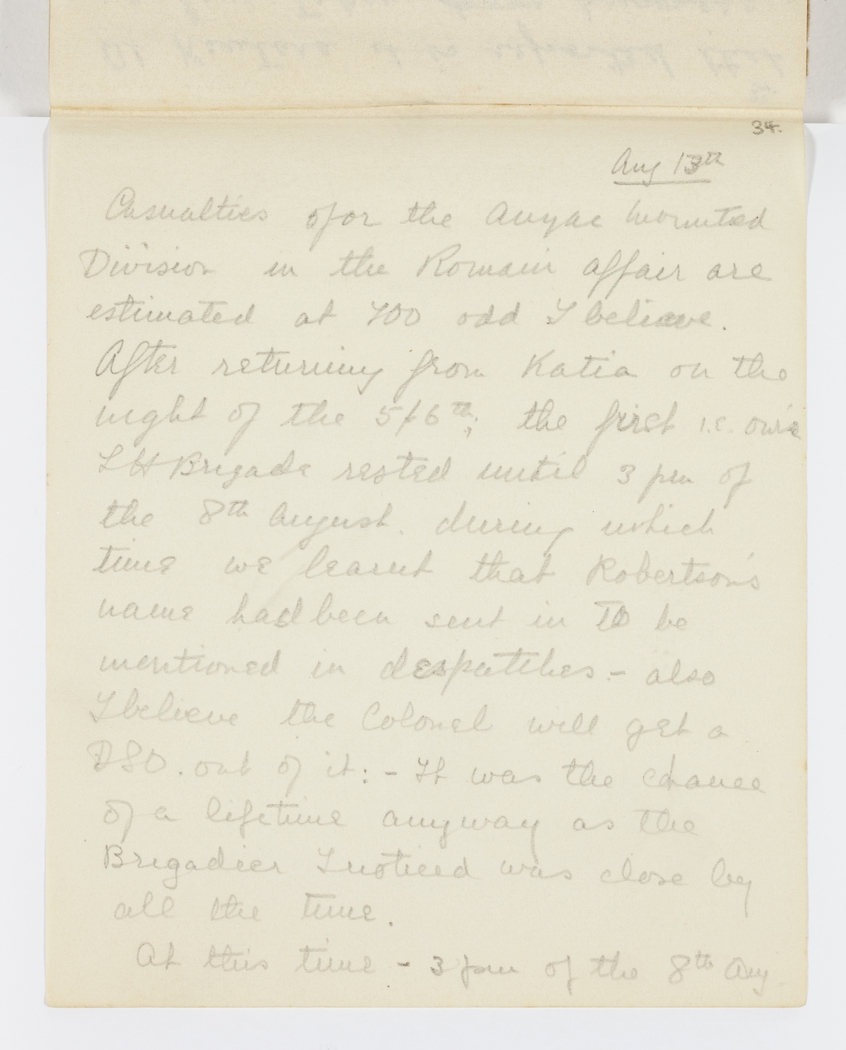 34.
Aug 13th
Casualties ofor the Anzac Mounted
Division in the Romain affair are
estimated at 700 odd I believe.
After returning from Katia on the
night of the 5/6th; the first i.e. our's
LH Brigade rested until 3 pm of
the 8th August. during which
time we learnt that Robertson's
name had been sent in to be
mentioned in despatches. - also
I believe the Colonel will get a
DSO. out of it: - It was the chance
of a lifetime anyway as the
Brigadier I noticed was close by
all the time.
At this time - 3 pm of the 8th Aug